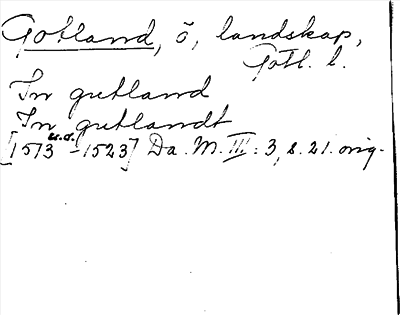 Gotland, ö, landskap,
Gotl. l.
In gutland
In gutlandt
[1513 u.å. - 1523] Da. M. III: 3, s. 21. orig.